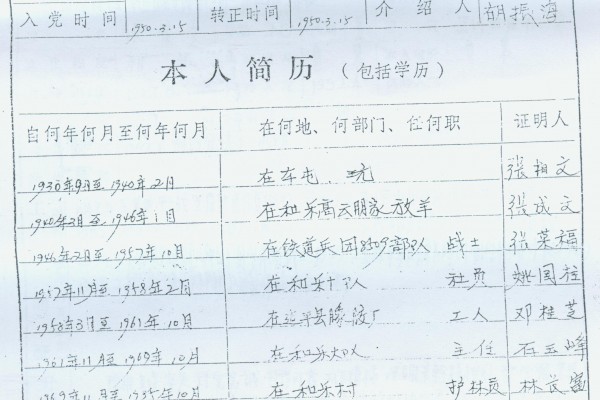 入党时间 1950.3.15 转正时间 1950.3.15 介绍人 胡振海
本人简历(包括学历)
自何年何月至何年何月 在何地、何部门、任何职 证明人
1936年9月至1940年2月 在车屯 张相文
1940年3月至1946年1月 在和乐高云朋家放羊 张成文
1946年2月至1957年10月 在铁道兵团8509部队 战士 张荣福
1957年11月至1958年2月 在和乐 社员 姚国柱
1958年3月至1961年10月 在 县 厂 工人 邓桂芝
1961年11月至1969年10月 在和乐大队 主任 石玉峰
1969年11月至1985年10月 在和乐村 护林员 林长富